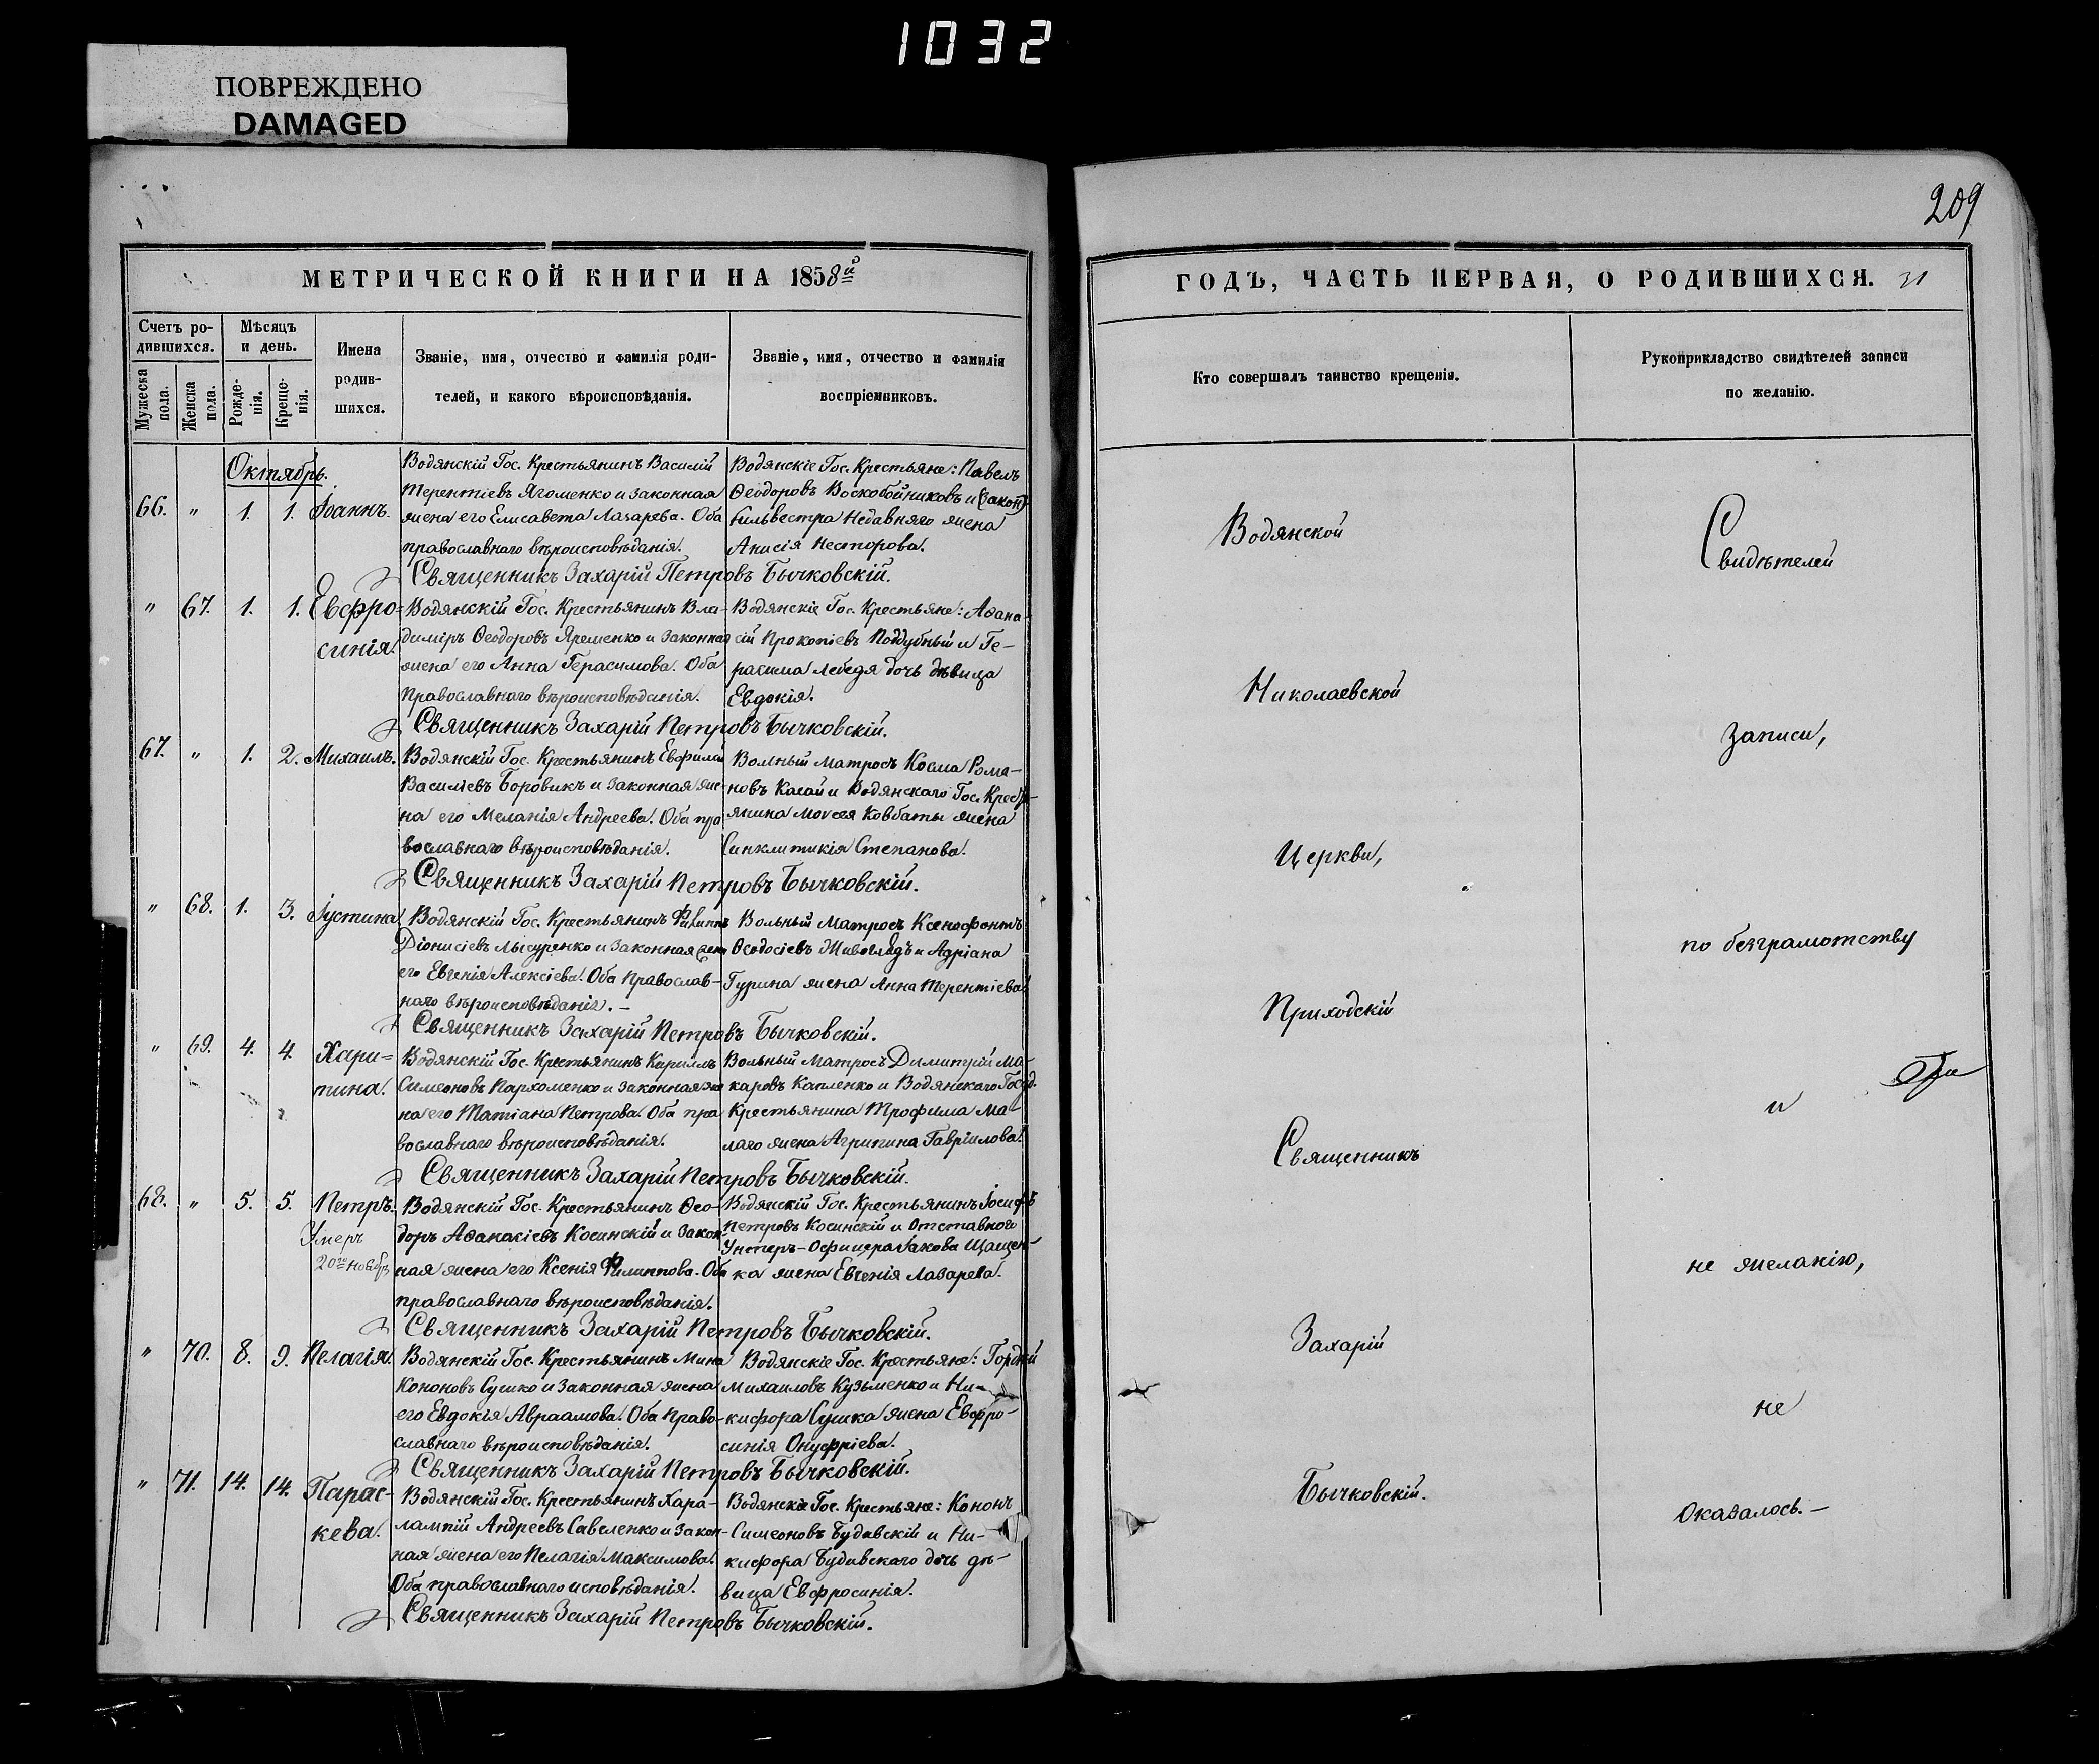 1032
ПОВРЕЖДЕНО
DAMAGED
209
МЕТРИЧЕСКОЙ КНИГИ НА 1858й
ГОДЪ, ЧАСТЬ ПЕРВАЯ, О РОДИВШИХСЯ. 31
Счетъ ро-
дившихся.
Мужеска пола.
Женска пола.
Мѣсяцъ
и день.
Рожде-
нія.
Креще-
нія.
Имена
родив-
шихся.
Званіе, имя, отчество и фамилія роди-
телей, и какого вѣроисповѣданія.
Званіе, имя, отчество и фамилія
воспріемниковъ.
Кто совершалъ таинство крещенія.
Рукоприкладство свидѣтелей записи
по желанію.
Октябрь.
66. " 1. 1. Іоаннъ.
Водянскій Гос. Крестьянинъ Василій
Терентіевъ Ягоменко и законная
жена его Елисавета Лазарева. Оба
православнаго вѣроисповѣданія.
Водянскіе Гос. Крестьяне: Павелъ
Ѳеодоровъ Воскобойниковъ и (закон)
Сильвестра Недавняго жена
Анисія Несторова.
Священникъ Захарій Петровъ Бычковскій.
" 67. 1. 1. Евфро-
синія.
Водянскій Гос. Крестьянинъ Вла-
диміръ Ѳеодоровъ Яременко и законная
жена его Анна Герасимова. Оба
Православнаго вѣроисповѣданія.
Водянскіе Гос. Крестьяне: Аѳана-
сій Прокопіевъ Поддубный и Ге-
расима Лебедя дочь дѣвица
Евдокія.
Священникъ Захарій Петровъ Бычковскій.
67. " 1. 2. Михаилъ.
Водянскій Гос. Крестьянинъ Евфимій
Васильевъ Боровикъ и законная же-
на его Меланія Андреева. Оба пра
вославнаго вѣроисповѣданія.
Вольный Матросъ Косма Рома-
новъ Касай и Водянскаго Гос. Кресть-
янина Моѵсея Ковбаты жена
Синклитикія Степанова.
Священникъ Захарій Петровъ Бычковскій.
" 68. 1. 3. Іустина
Водянскій Гос. Крестьянинъ Филиппъ
Діонисіевъ Лысуренко и законная жена
его Евгенія Алексіева. Оба Православ-
наго вѣроисповѣданія. -
Вольный Матросъ Ксенофонтъ
Ѳеодосіевъ и Адріана
Гурина жена Анна Терентіева.
Священникъ Захарій Петровъ Бычковскій.
" 69. 4. 4. Хари=
тина.
Водянскій Гос. Крестьянинъ Кириллъ
Симеоновъ Пархоменко и законная же
на его Татіана Петрова. Оба пра
вославнаго вѣроисповѣданія.
Вольный Матросъ Димитрій Ма-
каровъ Капленко и Водянскаго Госуд.
Крестьянина Трофима Ма-
лаго жена Агрипина Гавріилова.
Священникъ Захарій Петровъ Бычковскій.
68. " 5. 5. Петръ.
Умеръ
20го ноябр
Водянскій Гос. Крестьянинъ Ѳео-
доръ Аѳанасіевъ Косинскій и закон-
ная жена его Ксенія Филиппова. Оба
православнаго вѣроисповѣданія.
Водянскій Гос. Крестьянинъ Іосифъ
Петровъ Косинскій и Отставнаго
Унтеръ-Офицера Іакова Щащен-
ка жена Евгенія Лазарева.
Священникъ Захарій Петровъ Бычковскій.
" 70. 8. 9. Пелагія.
Водянскій Гос. Крестьянинъ Мина
Кононовъ Сушко и законная жена
его Евдокія Авраамова. Оба Право-
славнаго вѣроисповѣданія.
Водянскіе Гос. Крестьяне: Гордій
Михаиловъ Кузьменко и Ни-
кифора Сушка жена Евфро-
синія Онуфріева.
Священникъ Захарій Петровъ Бычковскій.
" 71. 14. 14. Парас-
кева.
Водянскій Гос. Крестьянинъ Хара-
лампій Андреевъ Савеленко и закон-
ная жена его Пелагія Максимова.
Оба православнаго исповѣданія.
Водянскіе Гос. Крестьяне: Кононъ
Симеоновъ Будавскій и Ни-
кифора Будавскаго дочь дѣ-
вица Евфросинія.
Священникъ Захарій Петровъ Бычковскій.
Водянской
Николаевской
Церкви,
Приходскій
Священникъ
Захарій
Бычковскій.
Свидѣтелей
записи,
по безграмотству
и
не желанію,
не
оказалось. -